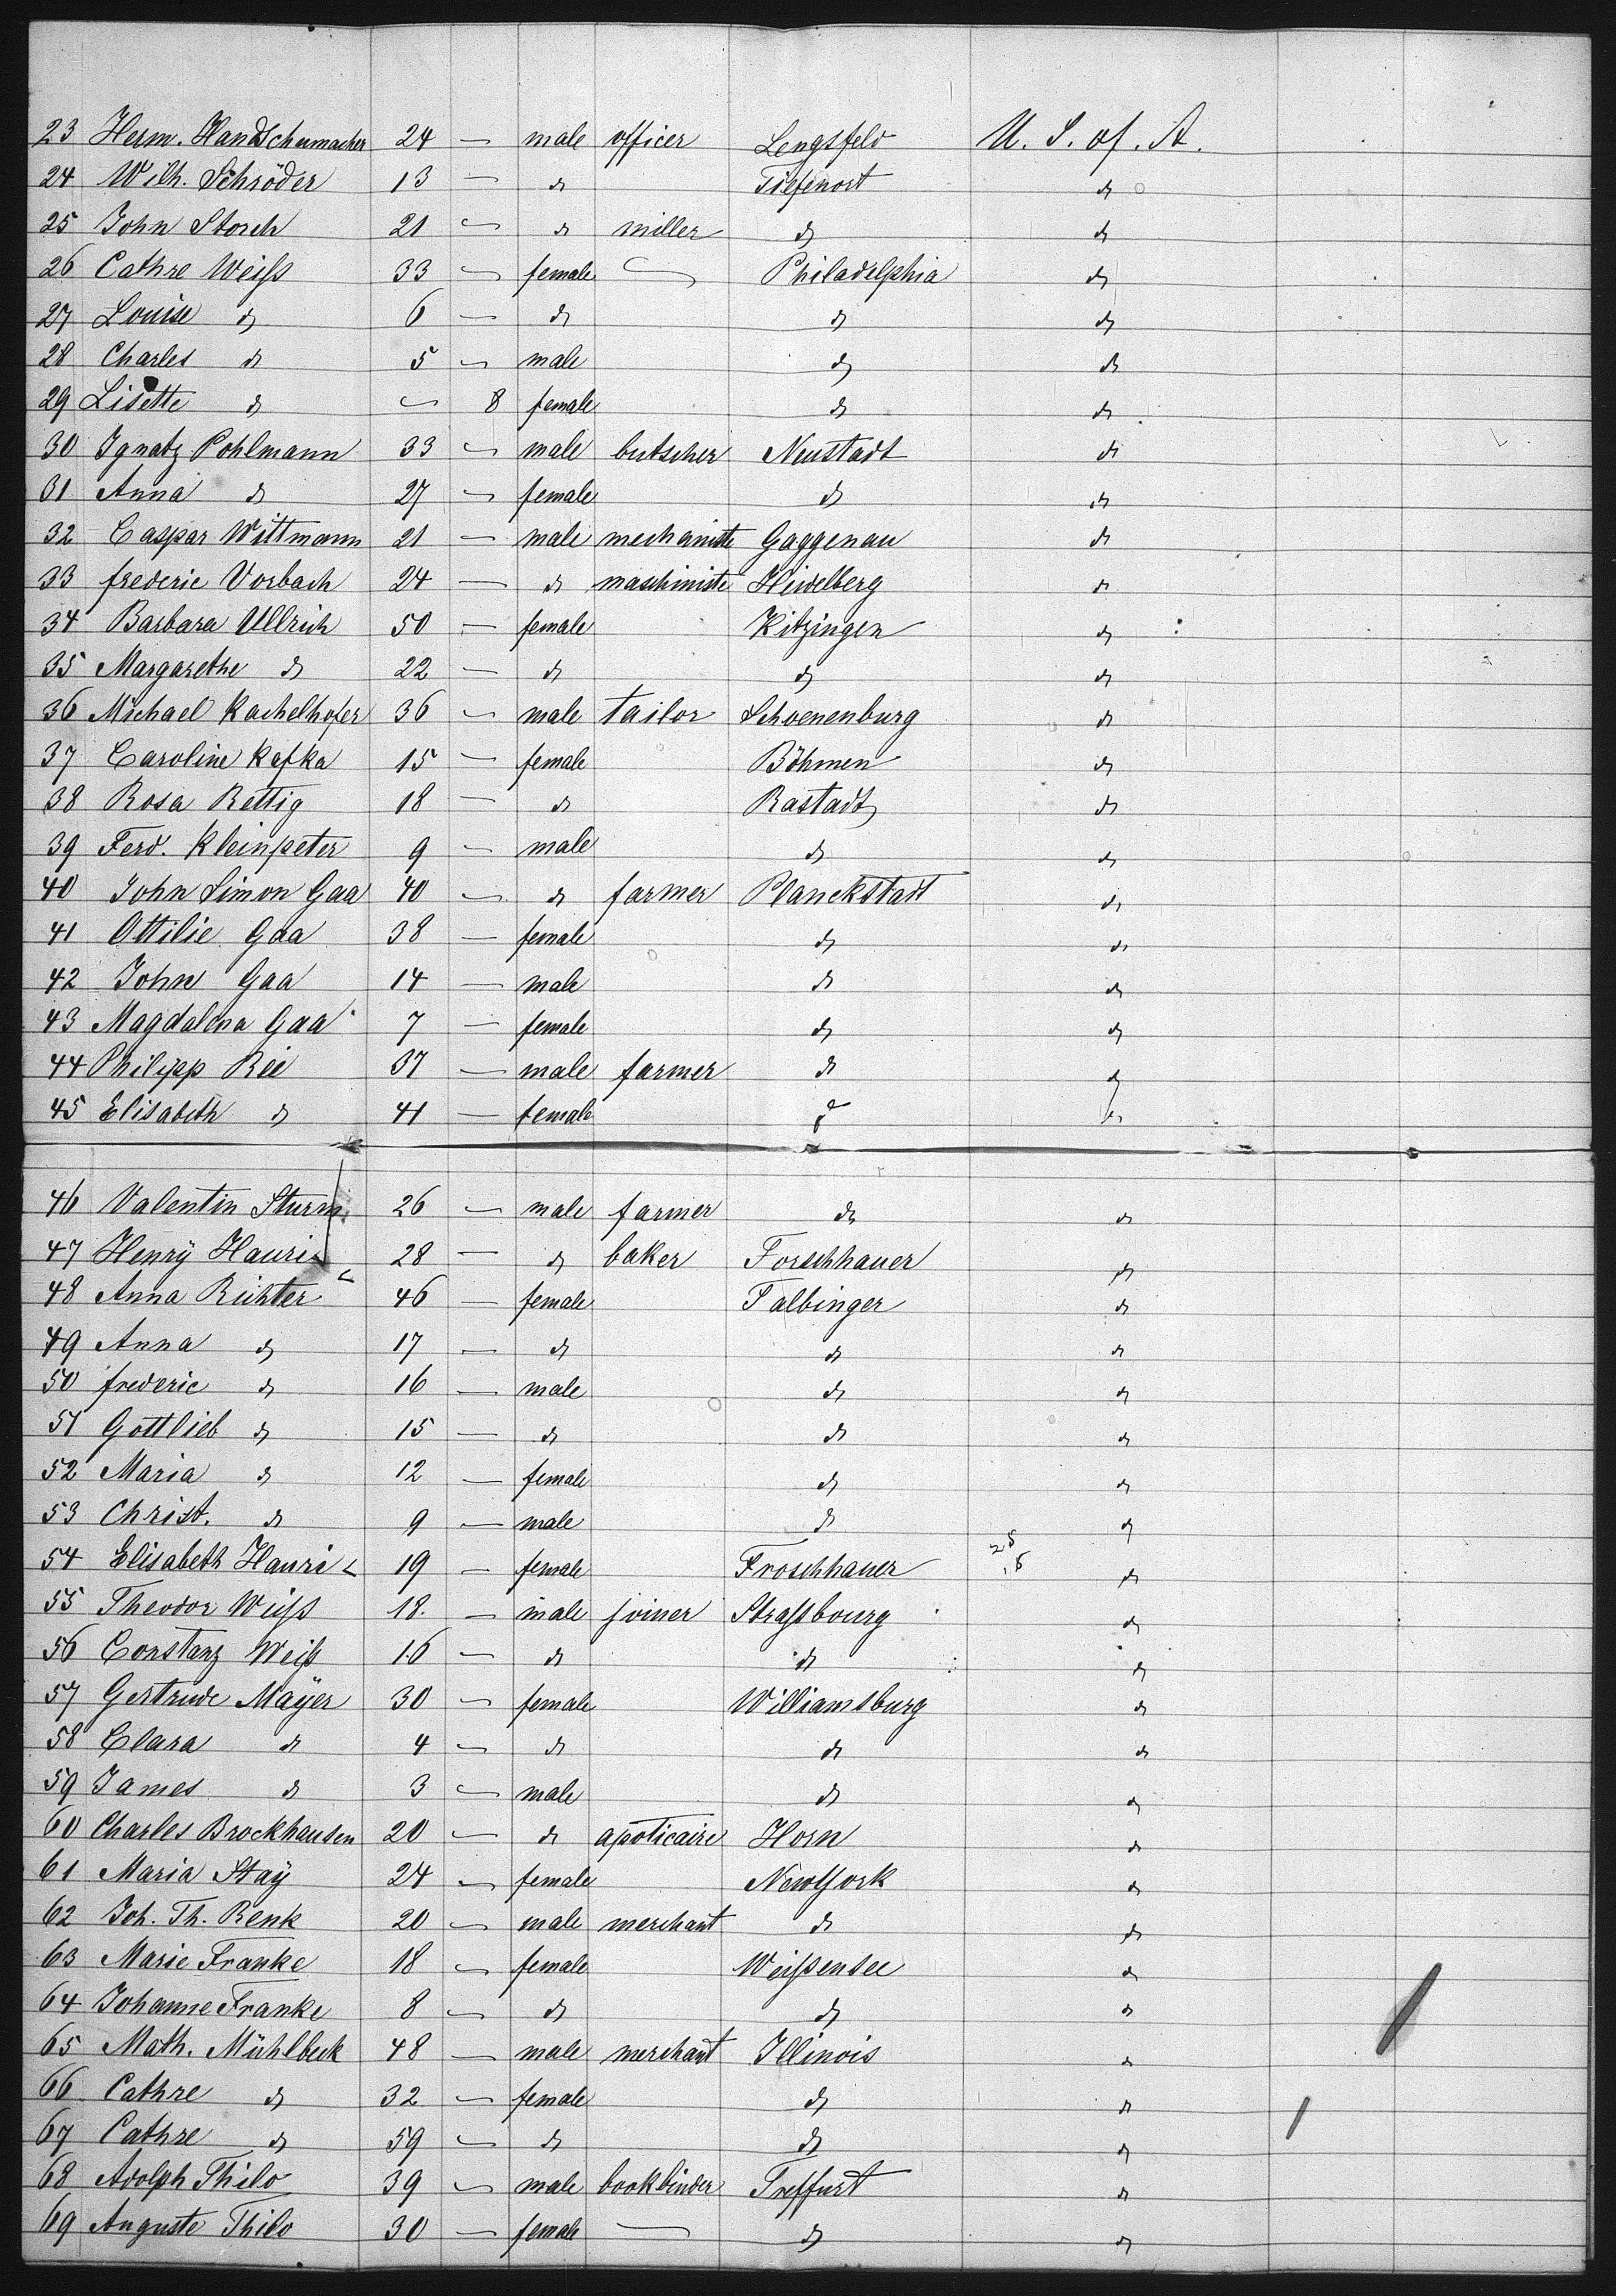 23 Herm. Handschumacher 24 — male officer Lengsfeld U. S. of. A.
24 Wilh. Schröder 13 — do Tiefenort do
25 John Storch 21 — do miller do do
26 Cathre Weiß 33 — female — Philadelphia do
27 Louise do 6 — do do do
28 Charles do 5 — male do do
29 Lisette do — 8 female do do
30 Ignatz Pohlmann 33 — male butscher Neustadt do
31 Anna do 27 — female do do
32 Caspar Wittmann 21 — male mechaniste Gaggenau do
33 frederic Vorbach 24 — do maschiniste Heidelberg do
34 Barbara Ullrich 50 — female Kitzingen do
35 Margarethe do 22 — do do do
36 Michael Kachelhofer 36 — male tailor Schoenenburg do
37 Caroline Kafka 15 — female Böhmen do
38 Rosa Rettig 18 — do Rastadt do
39 Ferd. Kleinpeter 9 — male do do
40 John Simon Gaa 40 — do farmer Planckstadt do
41 Ottilie Gaa 38 — female do do
42 John Gaa 14 — male do do
43 Magdalena Gaa 7 — female do do
44 Philipp Rei 37 — male farmer do do
45 Elisabeth do 41 — female do do
46 Valentin Sturm 26 — male farmer do do
47 Henry Hauri 28 — do baker Forschhauer do
48 Anna Richter 46 — female Talbinger do
49 Anna do 17 — do do do
50 frederic do 16 — male do do
51 Gottlieb do 15 — do do do
52 Maria do 12 — female do do
53 Christ. do 9 — male do do
54 Elisabeth Hauri 19 — female Froschhauer do
55 Theodor Weiß 18. — male joiner Straßbourg do
56 Constanz Weiß 16 — do do do
57 Gertrude Mayer 30 — female Williamsburg do
58 Clara do 4 — do do do
59 James do 3 — male do do
60 Charles Brockhausen 20 — do apoticaire Horn do
61 Maria Stay 24 — female NewYork do
62 Joh. Th. Renk 20 — male merchant do do
63 Marie Franke 18 — female Weißensee do
64 Johanne Franke 8 — do do do
65 Math. Mühlbeck 48 — male merchant Illinois do
66 Cathre do 32 — female do do
67 Cathre do 59 — do do do
68 Adolph Thilo 39 — male bookbinder Treffurt do
69 Auguste Thilo 30 — female — do do